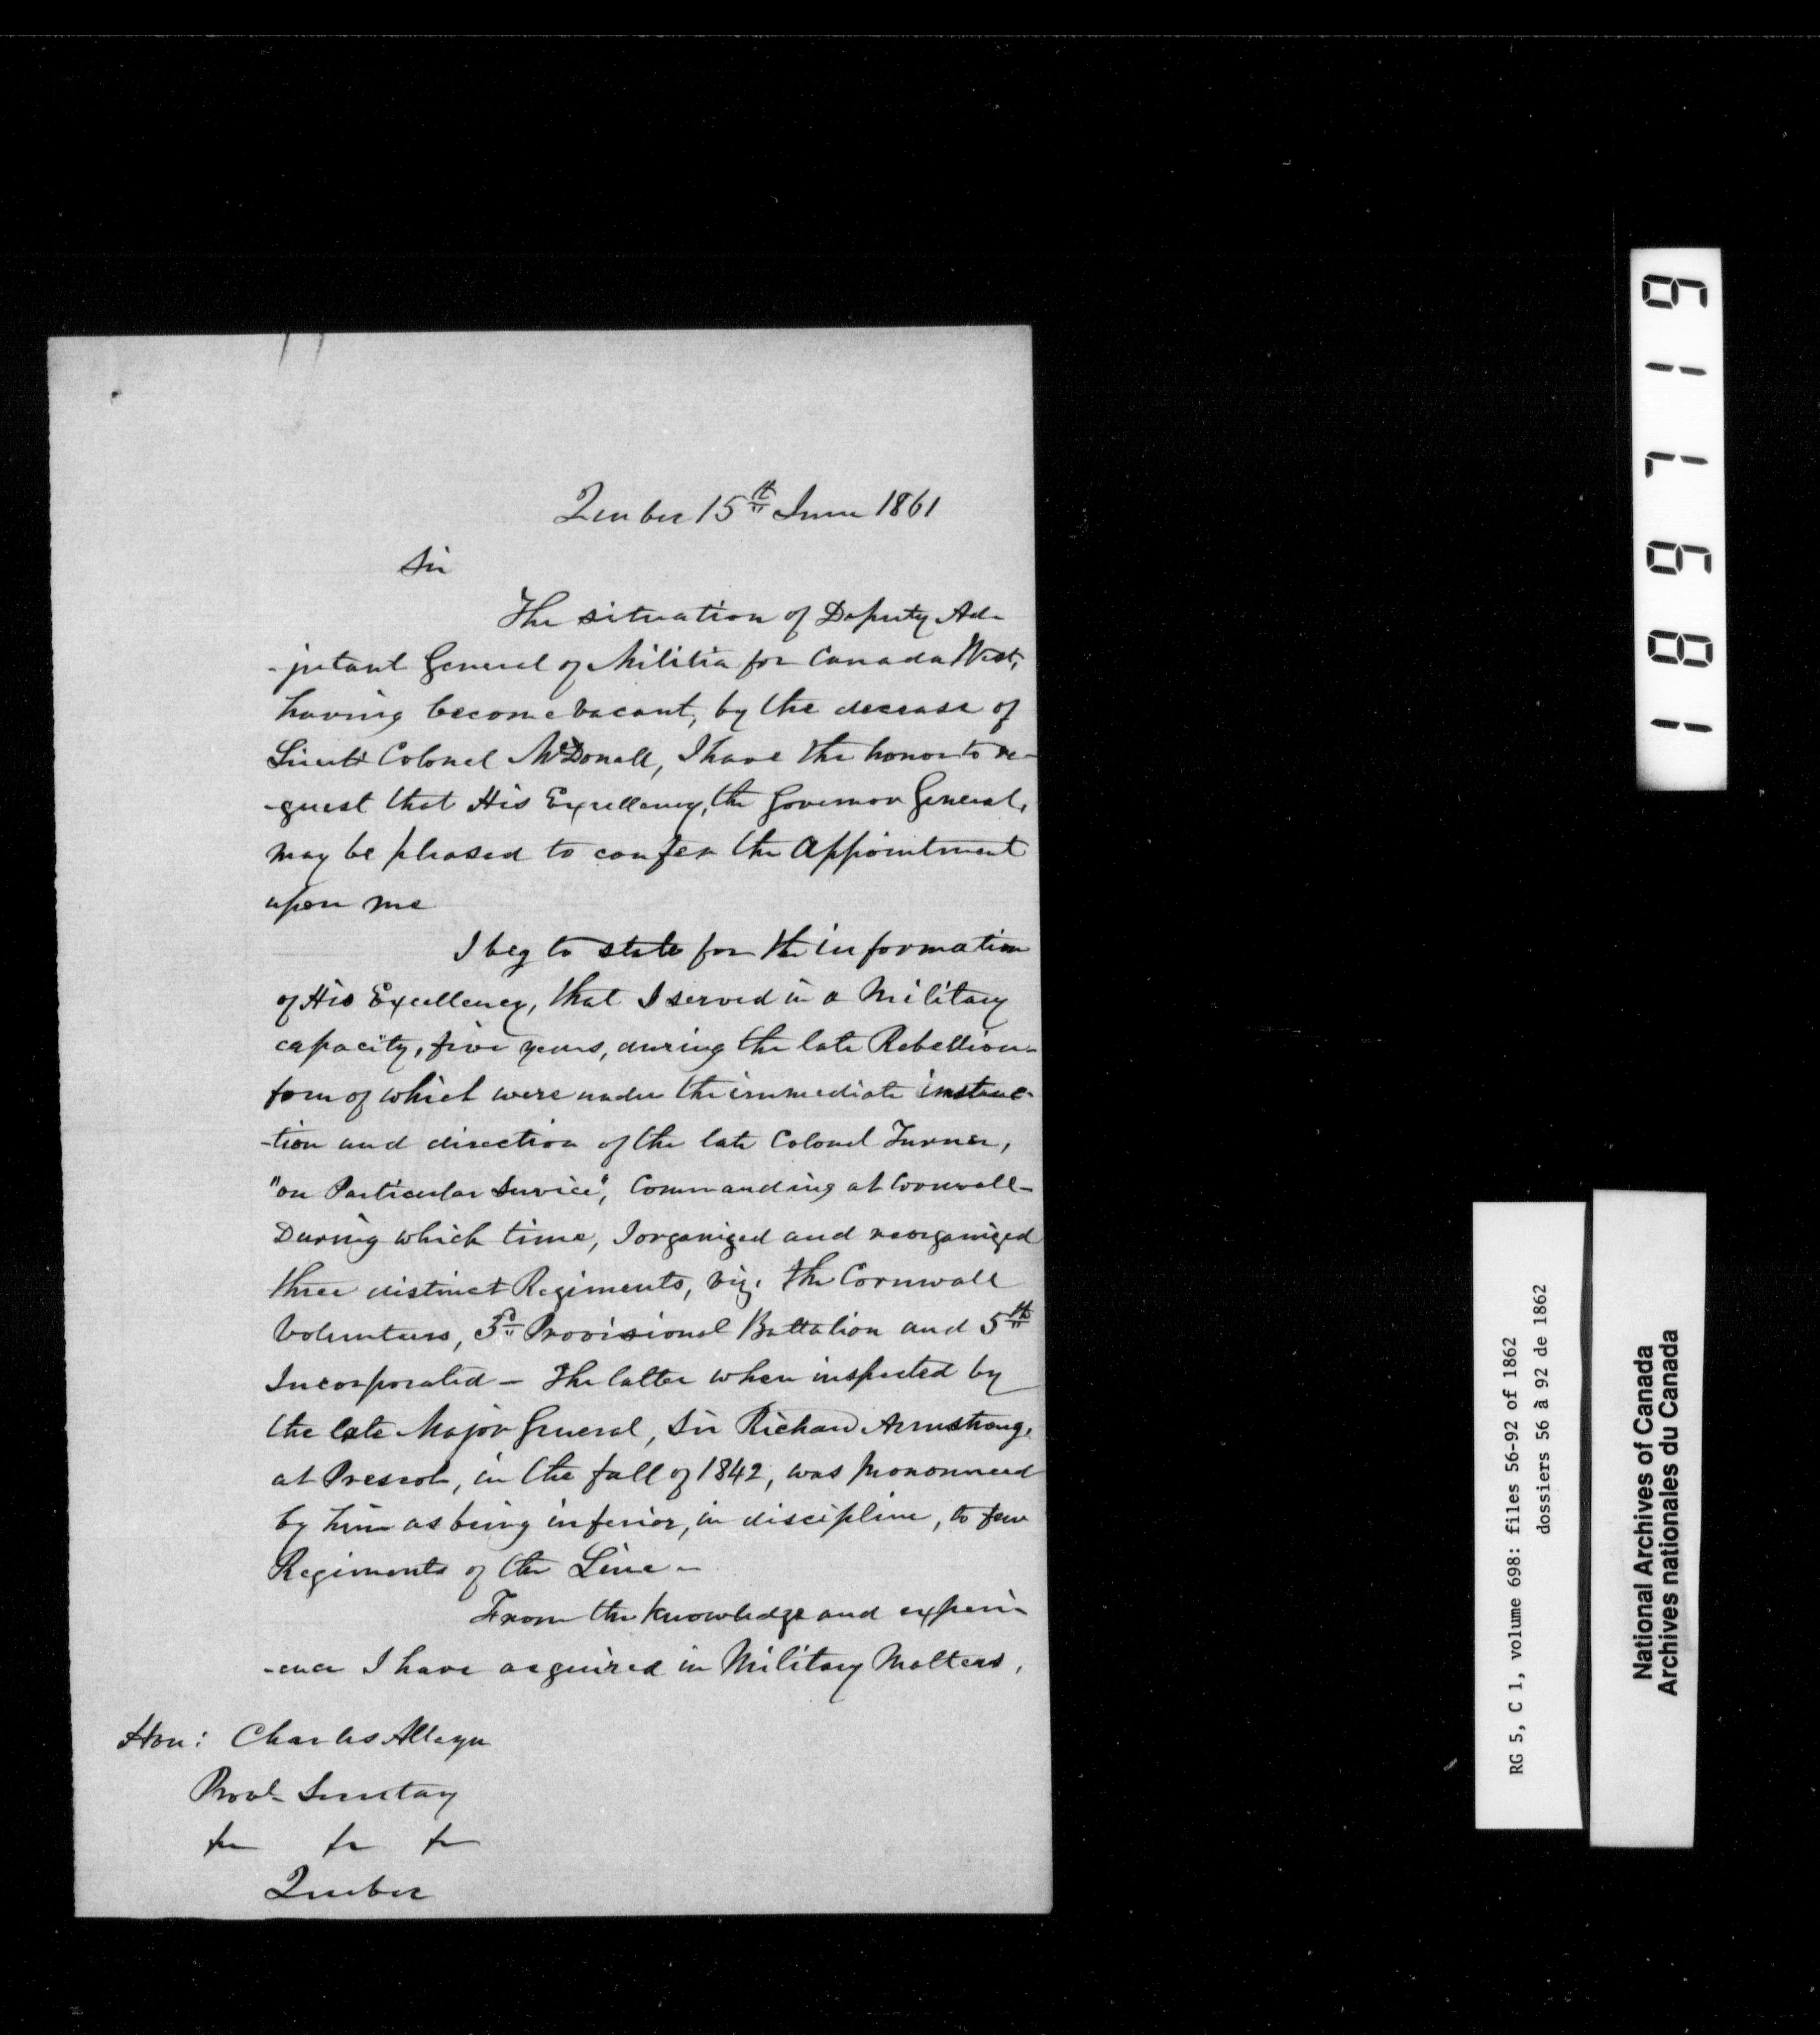 Quebec 15th June 1861
Sir
The situation of Deputy Ad-
-jutant General of Militia for Canada West,
having become vacant, by the decease of
Lieut Colonel McDonell, I have the honor to re-
-quest that His Excellency, the Governor General,
may be pleased to confer the Appointment
upon me
I beg to state for the information
of His Excellency, that I served in a Military
capacity, five years, during the late Rebellion-
four of which were under the immediate instruc-
-tion and direction of the late Colonel Turner,
"on Particular Service", Commanding at Cornwall-
During which time, I organized and reorganized
three distinct Regiments, viz. the Cornwall
Volunteers, 3rd Provisional Battalion and 5th
Incorporated - The latter when inspected by
the late Major General, Sir Richard Armstrong,
at Prescot, in the fall of 1842, was pronounced
by him as being inferior, in discipline, to few
Regiments of the Line -
From the knowledge and experi-
-ence I have acquired in Military Matters,
Hon: Charles Alleyn
Provl Secretary
&c &c &c
Quebec
181 67 19
RG 5, C 1, volume 698: files 56-92 of 1862
dossiers 56 à 92 de 1862
National Archives of Canada
Archives nationales du Canada